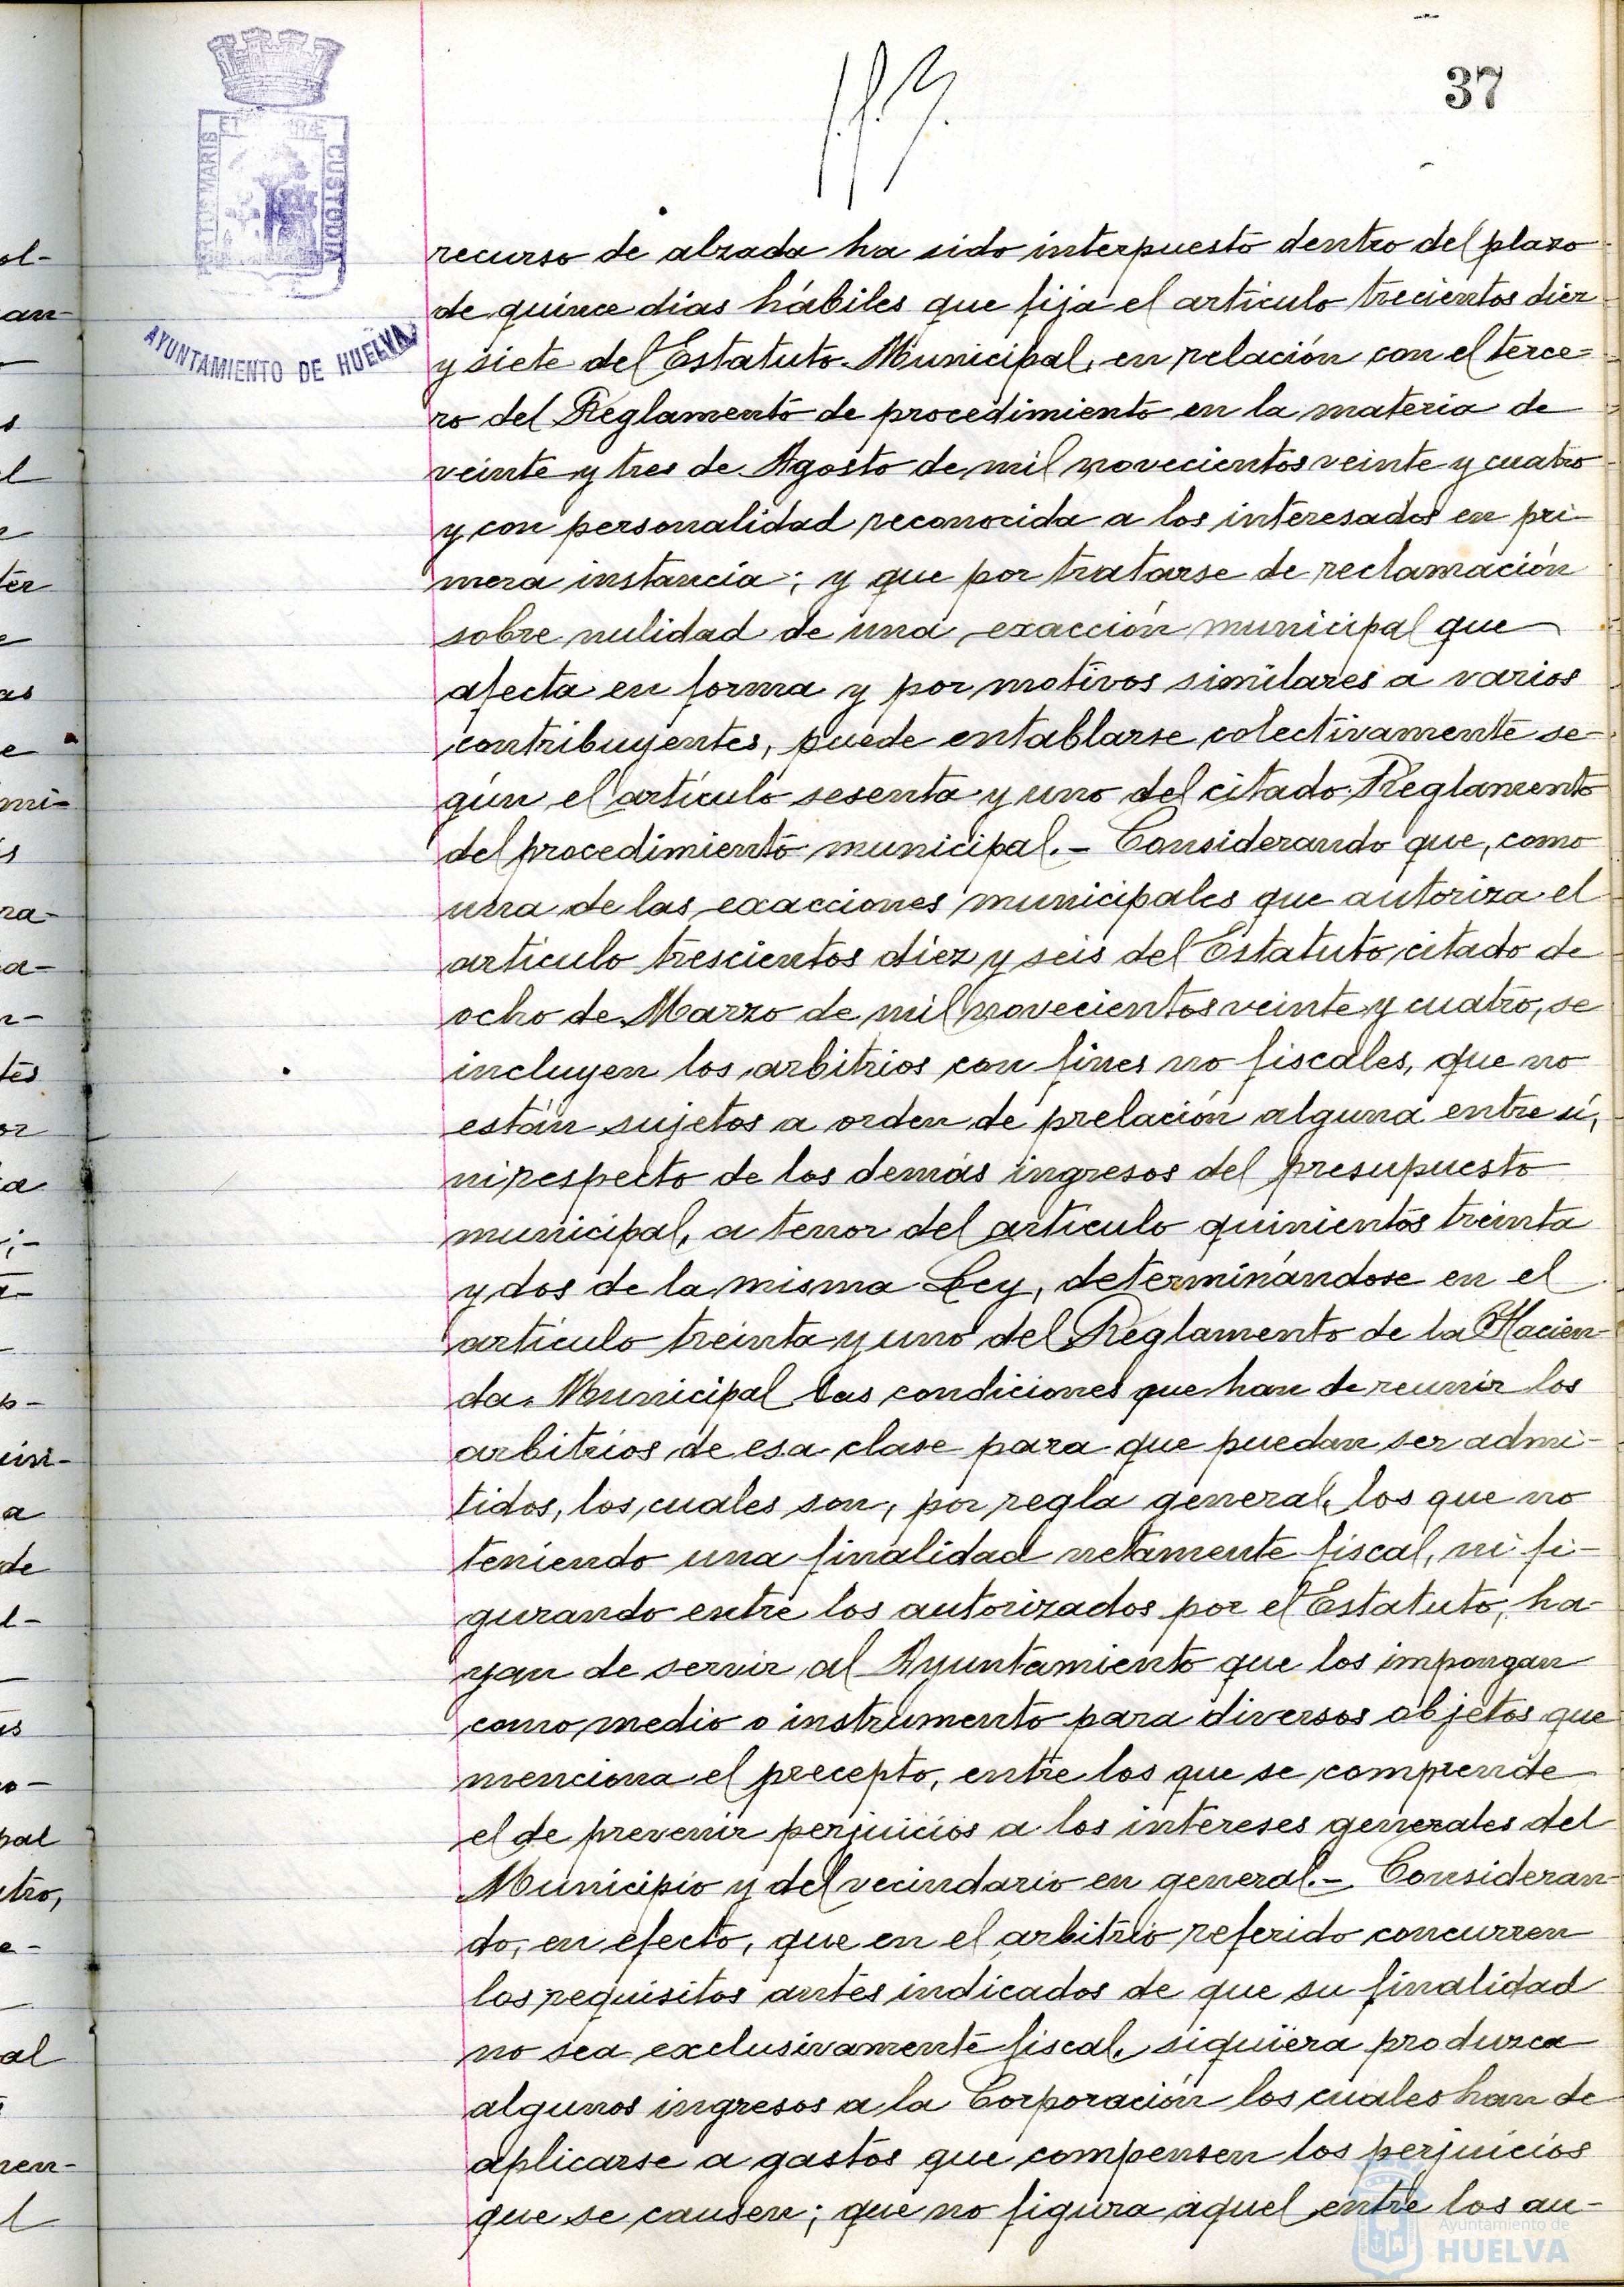 37
PORTUS MARIS ET TERRÆ CUSTODIA
AYUNTAMIENTO DE HUELVA
recurso de alzada ha sido interpuesto dentro del plazo
de quince días hábiles que fija el artículo trecientos diez
y siete del Estatuto Municipal, en relación con el terce=
ro del Reglamento de procedimiento en la materia de
veinte y tres de Agosto de mil novecientos veinte y cuatro
y con personalidad reconocida a los interesados en pri-
mera instancia; y que por tratarse de reclamación
sobre nulidad de una exacción municipal que
afecta en forma y por motivos similares a varios
contribuyentes, puede entablarse colectivamente se-
gún el artículo sesenta y uno del citado Reglamento
del procedimiento municipal.- Considerando que, como
una de las exacciones municipales que autoriza el
artículo trescientos diez y seis del Estatuto citado de
ocho de Marzo de mil novecientos veinte y cuatro, se
incluyen los arbitrios con fines no fiscales, que no
están sujetos a orden de prelación alguna entre sí,
ni respecto de los demás ingresos del presupuesto
municipal, a tenor del artículo quinientos treinta
y dos de la misma Ley, determinándose en el
artículo treinta y uno del Reglamento de la Hacien-
da Municipal las condiciones que han de reunir los
arbitrios de esa clase para que puedan ser admi-
tidos, los cuales son, por regla general, los que no
teniendo una finalidad netamente fiscal, ni fi-
gurando entre los autorizados por el Estatuto, ha-
yan de servir al Ayuntamiento que los impongan
como medio o instrumento para diversos objetos que
menciona el precepto, entre los que se comprende
el de prevenir perjuicios a los intereses generales del
Municipio y del vecindario en general.- Consideran-
do, en efecto, que en el arbitrio referido concurren
los requisitos antes indicados de que su finalidad
no sea exclusivamente fiscal, siquiera produzca
algunos ingresos a la Corporación los cuales han de
aplicarse a gastos que compensen los perjuicios
que se causen; que no figura aquel entre los au-
Ayuntamiento de
HUELVA